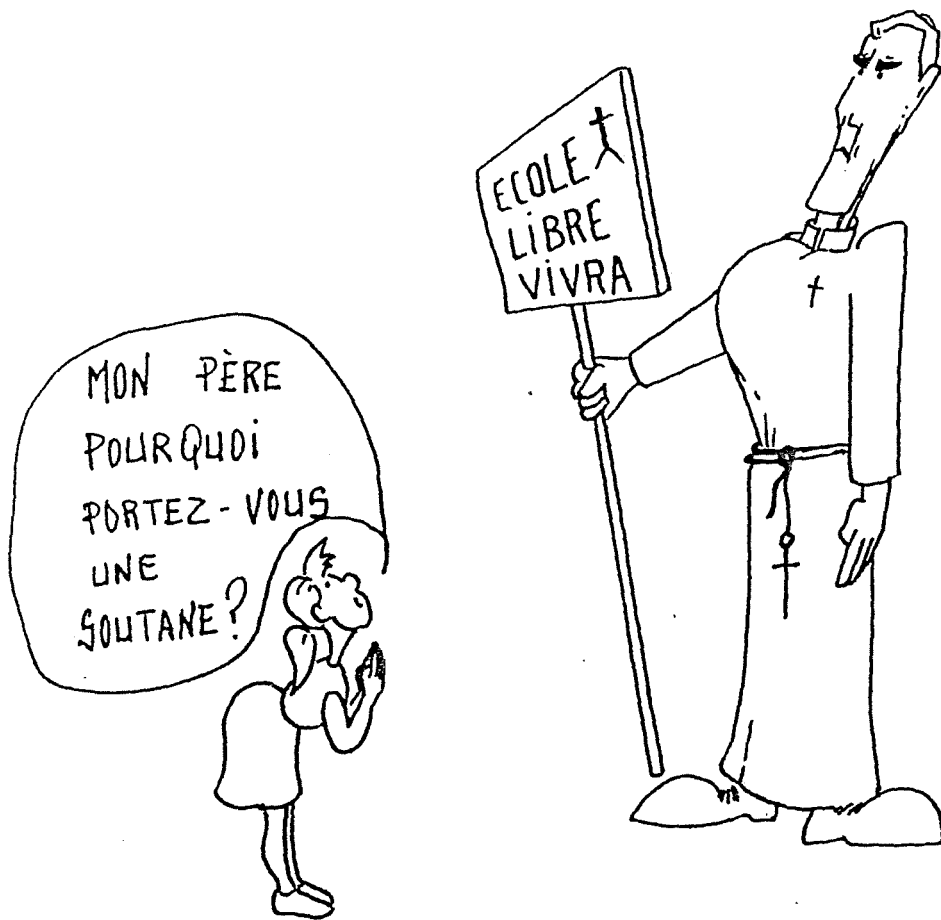 ECOLE
LiBRE
ViVRA
MON PÈRE
POURQUOi
PORTEZ-VOUS
UNE
SOUTANE?